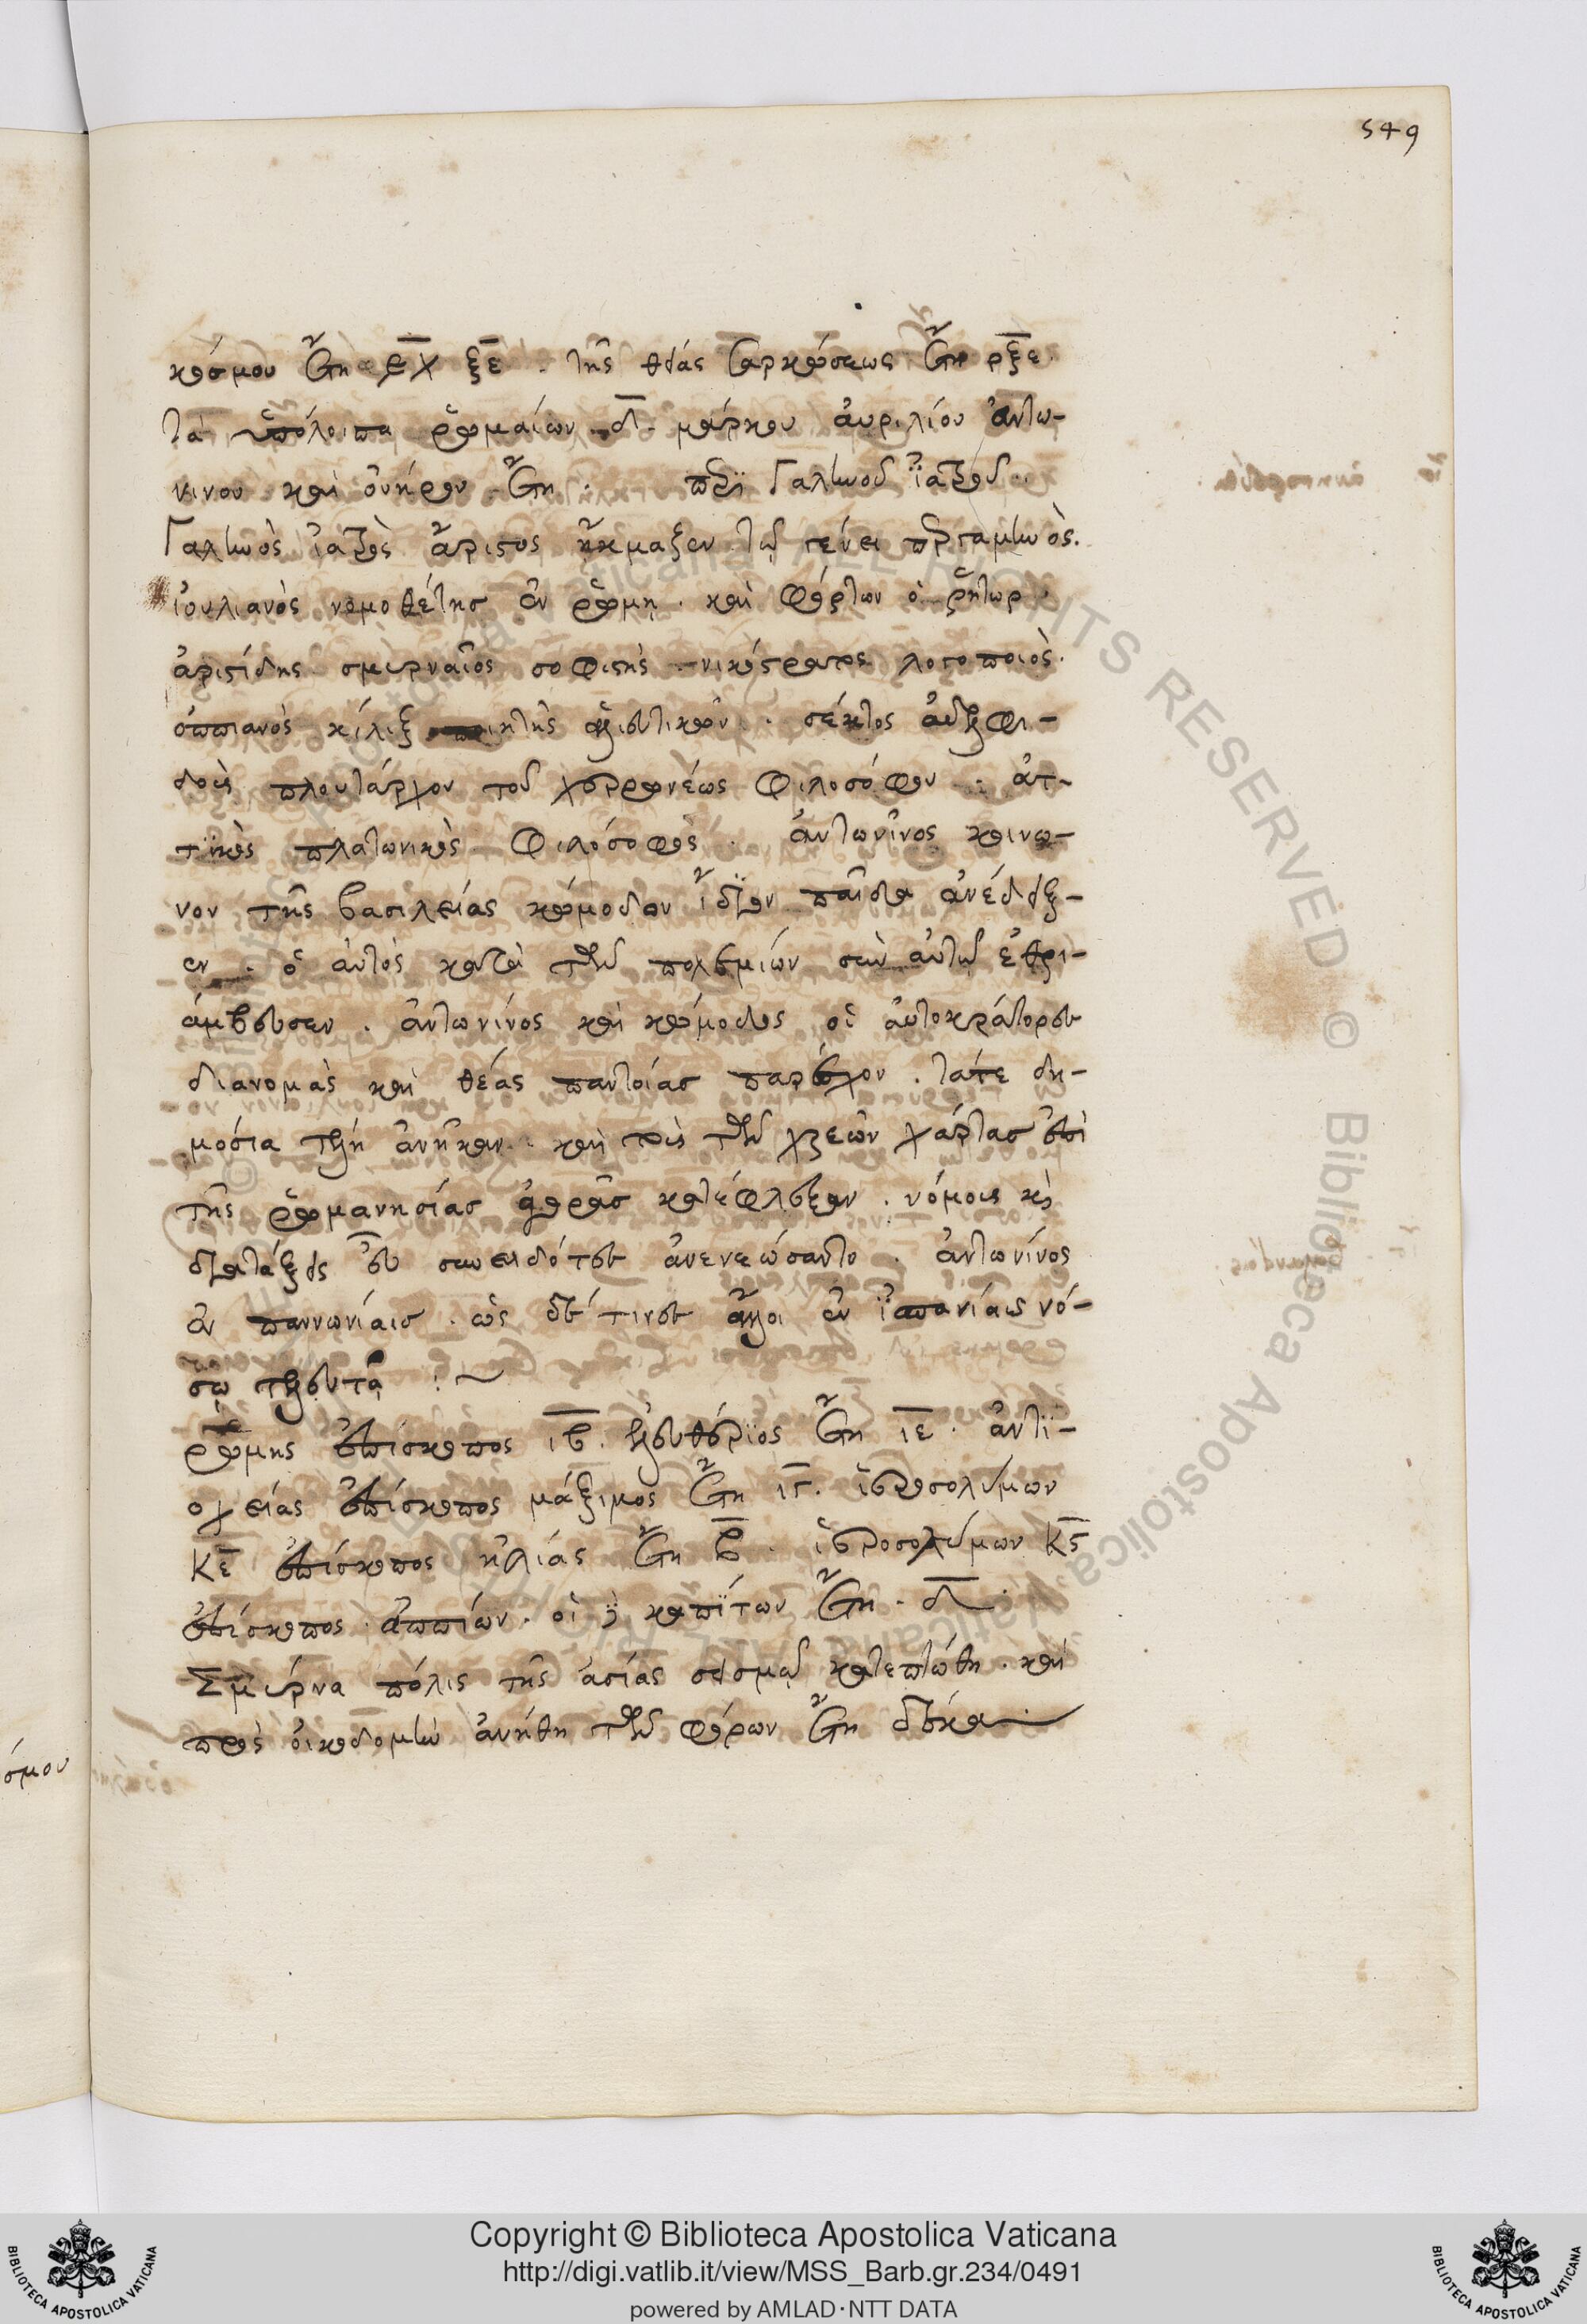 549
κόσμου ἔτη εχξε. τῆς θείας σαρκώσεως ἔτη ρξε.
τὰ ὑπόλοιπα ῥωμαίων δ. μάρκου ἀυριλίου ἀντω-
νινου καὶ ὀυήρου ἔτη. περὶ Γαληνοῦ ἰατροῦ.
Γαληνὸς ἰατρὸς ἄριστος ἤκμαζεν τῷ γένει περγαμηνὸς.
ἰουλιανὸς νομοθέτης ἐν ῥώμη. καὶ φόρτων ὁ ῥήτωρ.
ἀριστίδης σμυρναῖος σοφιστὴς. νικόστρατος λογοποιὸς.
ὀππιανὸς κίλιξ ποιητὴς ἁλιευτικῶν. σέκτος ἀδελφι-
δοὺς πλουτάρχου τοῦ χερρονέως φιλοσόφου. ἀτ-
τϊκὸς πλατωνικὸς φιλόσοφὸς. ἀντωνῖνος κοινω-
νον τῆς βασιλείας κόμοδον ἴδϊον παῖδα ἀνέδειξ-
εν. ὁ ἀυτὸς κατὰ τῶν πολεμιών σὺν ἀυτῷ ἐθρι-
άμβευσεν. ἀντωνίνος καὶ κόμοδος οἱ ἀυτοκράτορες
διανομὰς καὶ θέας παντοίας παρεῖχον. τάτε δη-
μόσια τέλη ἀνῆκαν. καὶ τοὺς τῶν χρεῶν χάρτας ἐπὶ
τῆς ῥωμανησίας ἀγορᾶς κατέφλεξαν. νόμους καὶ
διατάξεις εὖ συνειδότες ἀνενεώσαντο. ἀντωνίνος
ἐν παννωνίαις. ὡς δέ τινες ἄλλοι ἐν ϊσπανίαις νό-
σω τελευτᾶ :~
ῥώμης ἐπίσκοπος ιβ. ἐλευθέρϊος ἔτη ιε. ἀντϊ-
οχείας ἐπίσκοπος μάξιμος ἔτη ιγ. ἱεροσολύμων
κε ἐπίσκοπος ηλίας ἔτη β. ἱεροσολύμων κς
ἐπίσκοπος ἀππιών. οἱ καπίτων ἔτη. δ.
Σμύρνα πόλις τῆς ἀσίας σεισμῷ κατεπτώθη. καὶ
πρὸς ὀικοδομὴν ἀνήθη τῶν φόρων ἔτη δέκα.
όμου
Copyright © Biblioteca Apostolica Vaticana
http://digi.vatlib.it/view/MSS_Barb.gr.234/0491
powered by AMLAD·NTT DATA